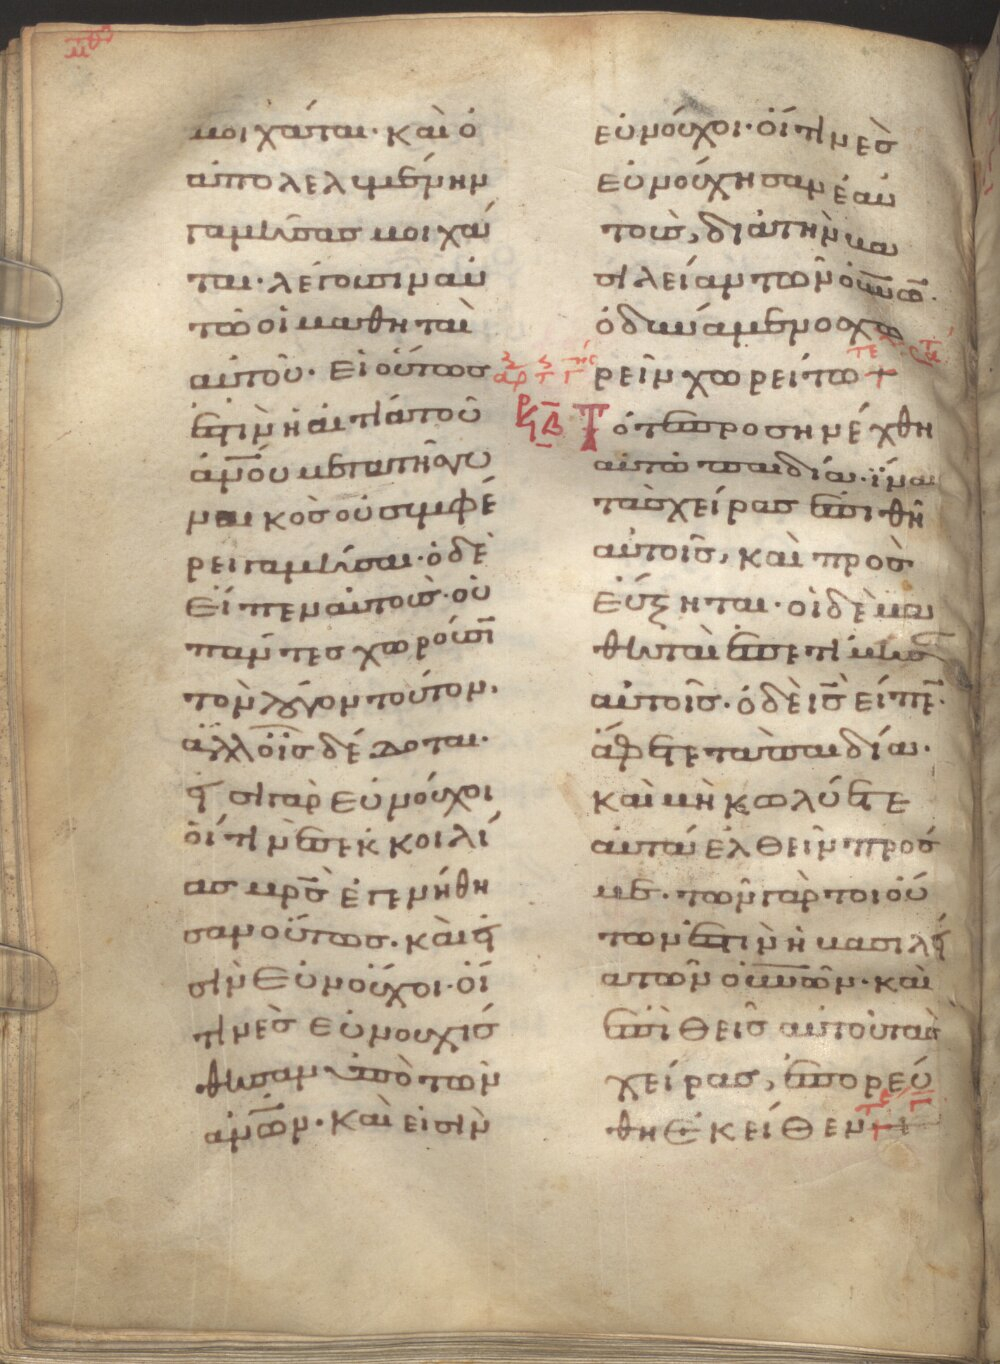 μοιχᾶται· καὶ ὁ
ἀπολελυμένην
γαμήσας μοιχᾶ
ται· λέγουσιν αὐ
τῶ οἱ μαθηταὶ
αὐτοῦ· εἰ οὕτως
ἐστὶν ἡ αἰτία τοῦ
ἀν̅ο̅υ μετὰ τῆς γυ
ναικὸς οὐ συμφέ
ρει γαμῆσαι· ὁ δὲ
εἶπεν αὐτοῖς· οὐ
πάντες χωροῦσι
τὸν λόγον τοῦτον·
ἀλλ οἷς δέδοται·
εἰσὶ γὰρ εὐνοῦχοι
οἵτινες ἐκ κοιλί
ας μρ̅ς ἐγεννήθη
σαν οὕτως· καὶ εἰ
σὶν εὐνοῦχοι· οἵ
τινες εὐνουχίσ
θησαν ὑπὸ τῶν
ἀν̅ω̅ν· καὶ εἰσὶν
εὐνοῦχοι· οἵτινες
εὐνούχησαν ἑαυ
τοὺς, διὰ τὴν βα
σιλείαν τῶν ο̅υ̅ν̅ω̅·
ὁ δυνάμενος χω
ρεῖν χωρείτω
ρκβ Τότε προσηνέχθη
αὐτῶ παιδία· ἵνα
τὰς χεῖρας ἐπιθῆ
αὐτοῖς, καὶ προσ
εύξηται· οἱ δὲ μα
θηταὶ ἐπετίμησ
αὐτοῖς· ὁ δὲ ι̅ς̅ εἶπε·
ἄφετε τὰ παιδία·
καὶ μὴ κωλύετε
αὐτὰ ἐλθεῖν πρός
με· τῶν γὰρ τοιού
των ἐστὶν ἡ βασιλεί
α τῶν ο̅υ̅ν̅ω̅ν· καὶ
ἐπιθεὶς αὐτοῖς τὰς
χεῖρας, ἐπορεύ
θη ἐκεῖθεν